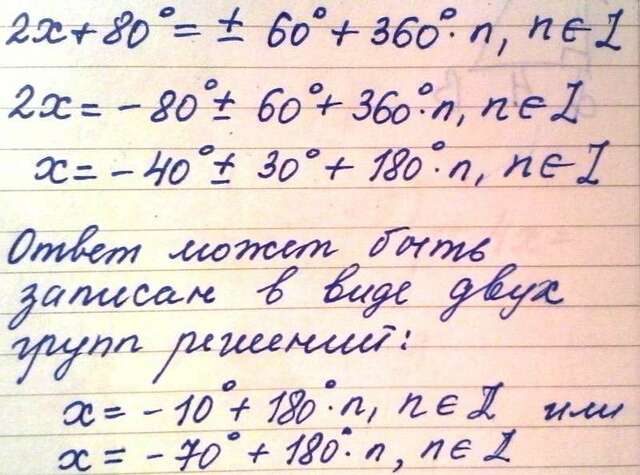 2x+80°=± 60°+360°·n, n∈Z
2x=-80°± 60°+360°·n, n∈Z
x=-40°± 30°+180°·n, n∈Z
Ответ может быть
записан в виде двух
групп решений:
x=-10°+180°·n, n∈Z или
x=-70°+180°·n, n∈Z